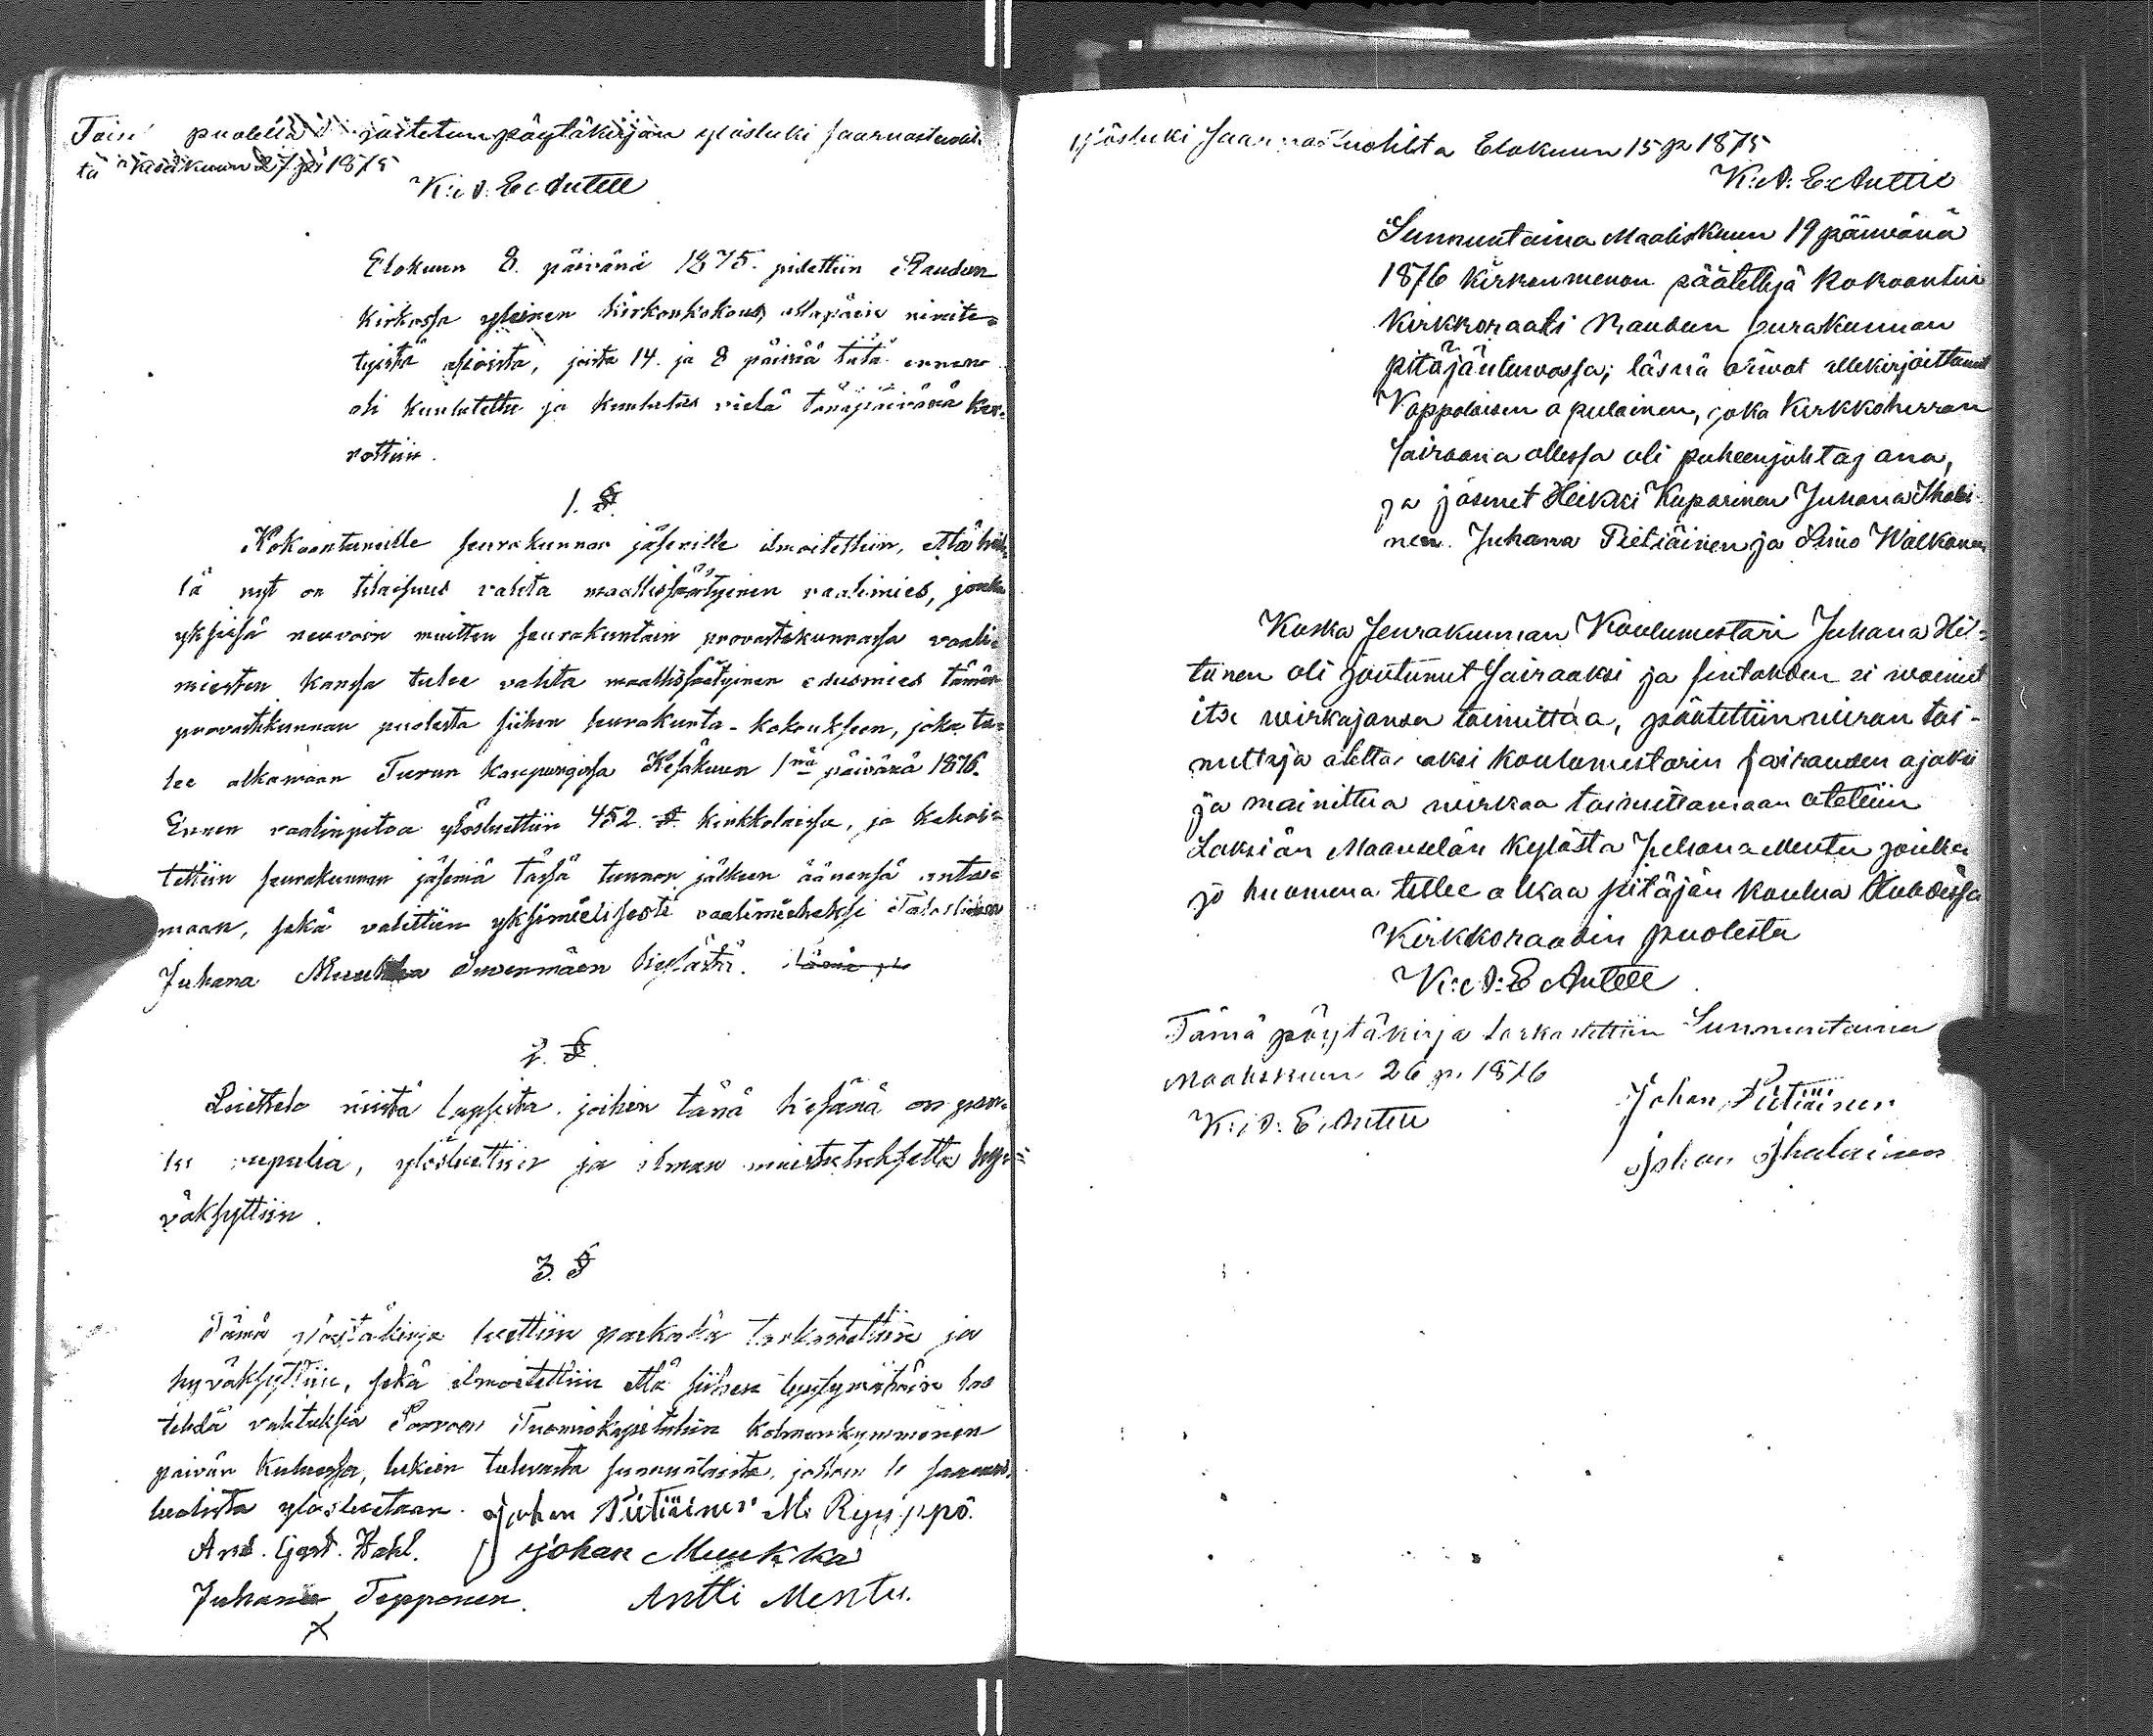 puolella joitetun pöytäkirjan yläsluki saarnastuolis
ta Kesäkuun 27 p: 1875
K: A: E: Antell
Elokuun 8. päivänä 1875. pidettiin Raudun
kirkossa yleinen kirkonkokous, allapäin nimite-
tyistä asioista, joista 14. ja 8 päivää tätä ennen
oli kuulutettu ja kuulutus vielä tänäpäivänä ker-
rottiin.
1. §.
Kokoontuneille seurakunnan jäsenille ilmoitettiin, että heil-
lä nyt on tilaisuus valita maallissäätyinen vaalimies, jonka
yksissä neuvoin muitten seurakuntain provastikunnassa vaali-
miesten kanssa tulee valita maallissäätyinen edusmies tämän
provastikunnan puolesta siihen seurakunta-kokoukseen, joka tu-
lee alkamaan Turun kaupungissa Kesäkuun 1nä päivänä 1876.
Ennen vaalinpitoa ylösluettiin 452. §. kirkkolaissa, ja kehoi-
tettiin seurakunnan jäseniä tässä tunnon jälkeen äänensä anta-
maan, sekä valittiin yksimielisesti vaalimieheksi Talollinen
Juhana Muukka Suvenmäen kylästä.
2. §.
Luettelo niistä lapsista, joihin tänä kesänä on pan-
tu rupulia, ylösluettiin ja ilman muistutuksetta hy-
väksyttiin.
3. §
Tämä pöytäkirja luettiin paikalla tarkastettiin ja
hyväksyttiin, sekä ilmoitettiin että siihen tyytymätöin saa
tehdä valituksia Porvoon Tuomiokapituliin kolmenkymmenen
päivän kuluessa, lukien tulevasta sunnuntaista, jolloin se saarnas-
tuolista ylösluetaan. Johan Pietiäinen M. Ryyppö.
And. Gust. Wahl. Johan Muukka
Juhana Tepponen. Antti Mentu.
X
yläsluki Saarnastuolilta Elokuun 15 p 1875
K: A: E: Antell
Sunnuntaina Maaliskuun 19 päiwänä
1876 kirkonmenon päätettyä kokoontui
Kirkkoraati Raudun seurakunnan
pitäjäntuwassa; läsnä oliwat allekirjoittanut
Kappalaisen apulainen, joka Kirkkoherran
sairaana ollessa oli puheenjohtajana,
ja jäsenet Heikki Kuparinen Juhana Ihalai-
nen. Juhana Pietiäinen ja Simo Walkonen
Koska Seurakunnan Koulumestari Juhana Hil-
tunen oli joutunut sairaaksi ja sentähden ei woinut
itse wirkajansa toimittaa, päätettiin wiran toi-
mittaja otettawaksi koulumestarin sairauden ajaksi
ja mainittua wirkaa toimittamaan otettiin
Maanselän kylästä Juhana Mentu jonka
jo huomena tulee alkaa pitäjän koulua
Kirkkoraadin puolesta
K: A: E Antell
Tämä pöytäkirja tarkastettiin Sunnuntaina
Maaliskuun 26 p. 1876
K: A: E: Antell
Johan Pietiäinen
Johan Ihalainen